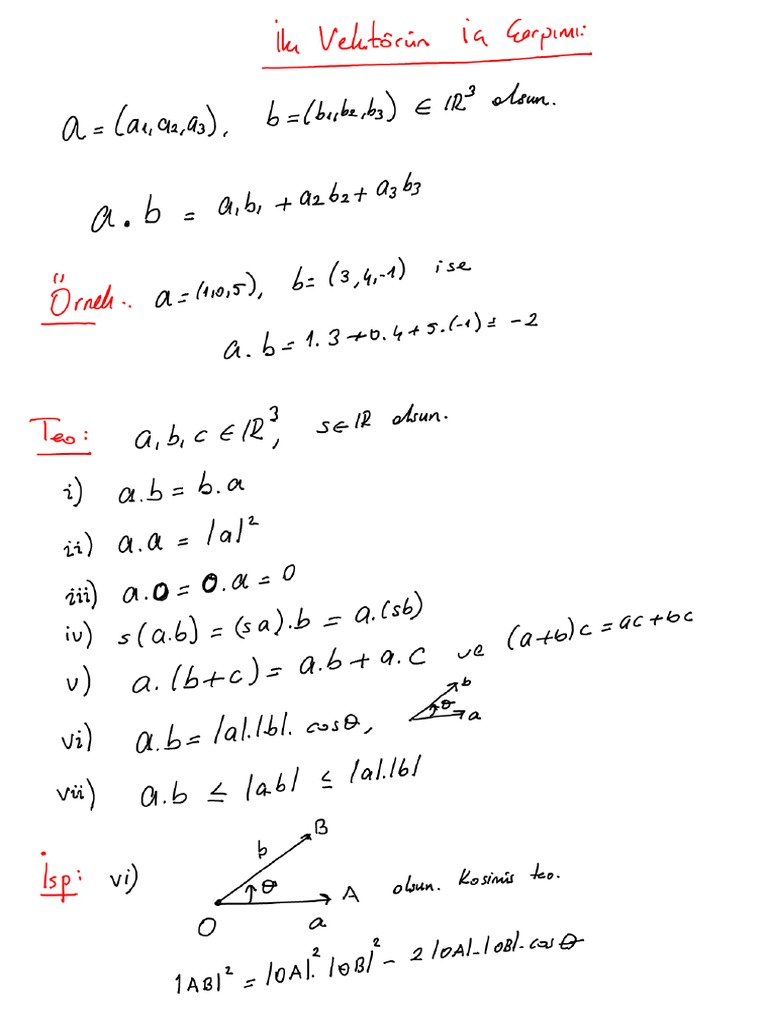 İki Vektörün iç Çarpımı:
a = (a1, a2, a3), b = (b1, b2, b3) ∈ IR³ olsun.
a . b = a1b1 + a2b2 + a3b3
Örnek: a = (1,0,5), b = (3,4,-1) ise
a . b = 1.3 + 0.4 + 5.(-1) = -2
Teo: a, b, c ∈ IR³, s ∈ IR olsun.
i) a.b = b.a
ii) a.a = |a|²
iii) a.0 = 0.a = 0
iv) s(a.b) = (sa).b = a.(sb)
v) a.(b+c) = a.b + a.c ve (a+b)c = ac + bc
vi) a.b = |a|.|b|. cosθ, b θ a
vii) a.b ≤ |ab| ≤ |a|.|b|
İsp: vi) O a A b B θ olsun. Kosinüs teo.
|AB|² = |OA|². |OB|² - 2|OA|.|OB|.cosθ